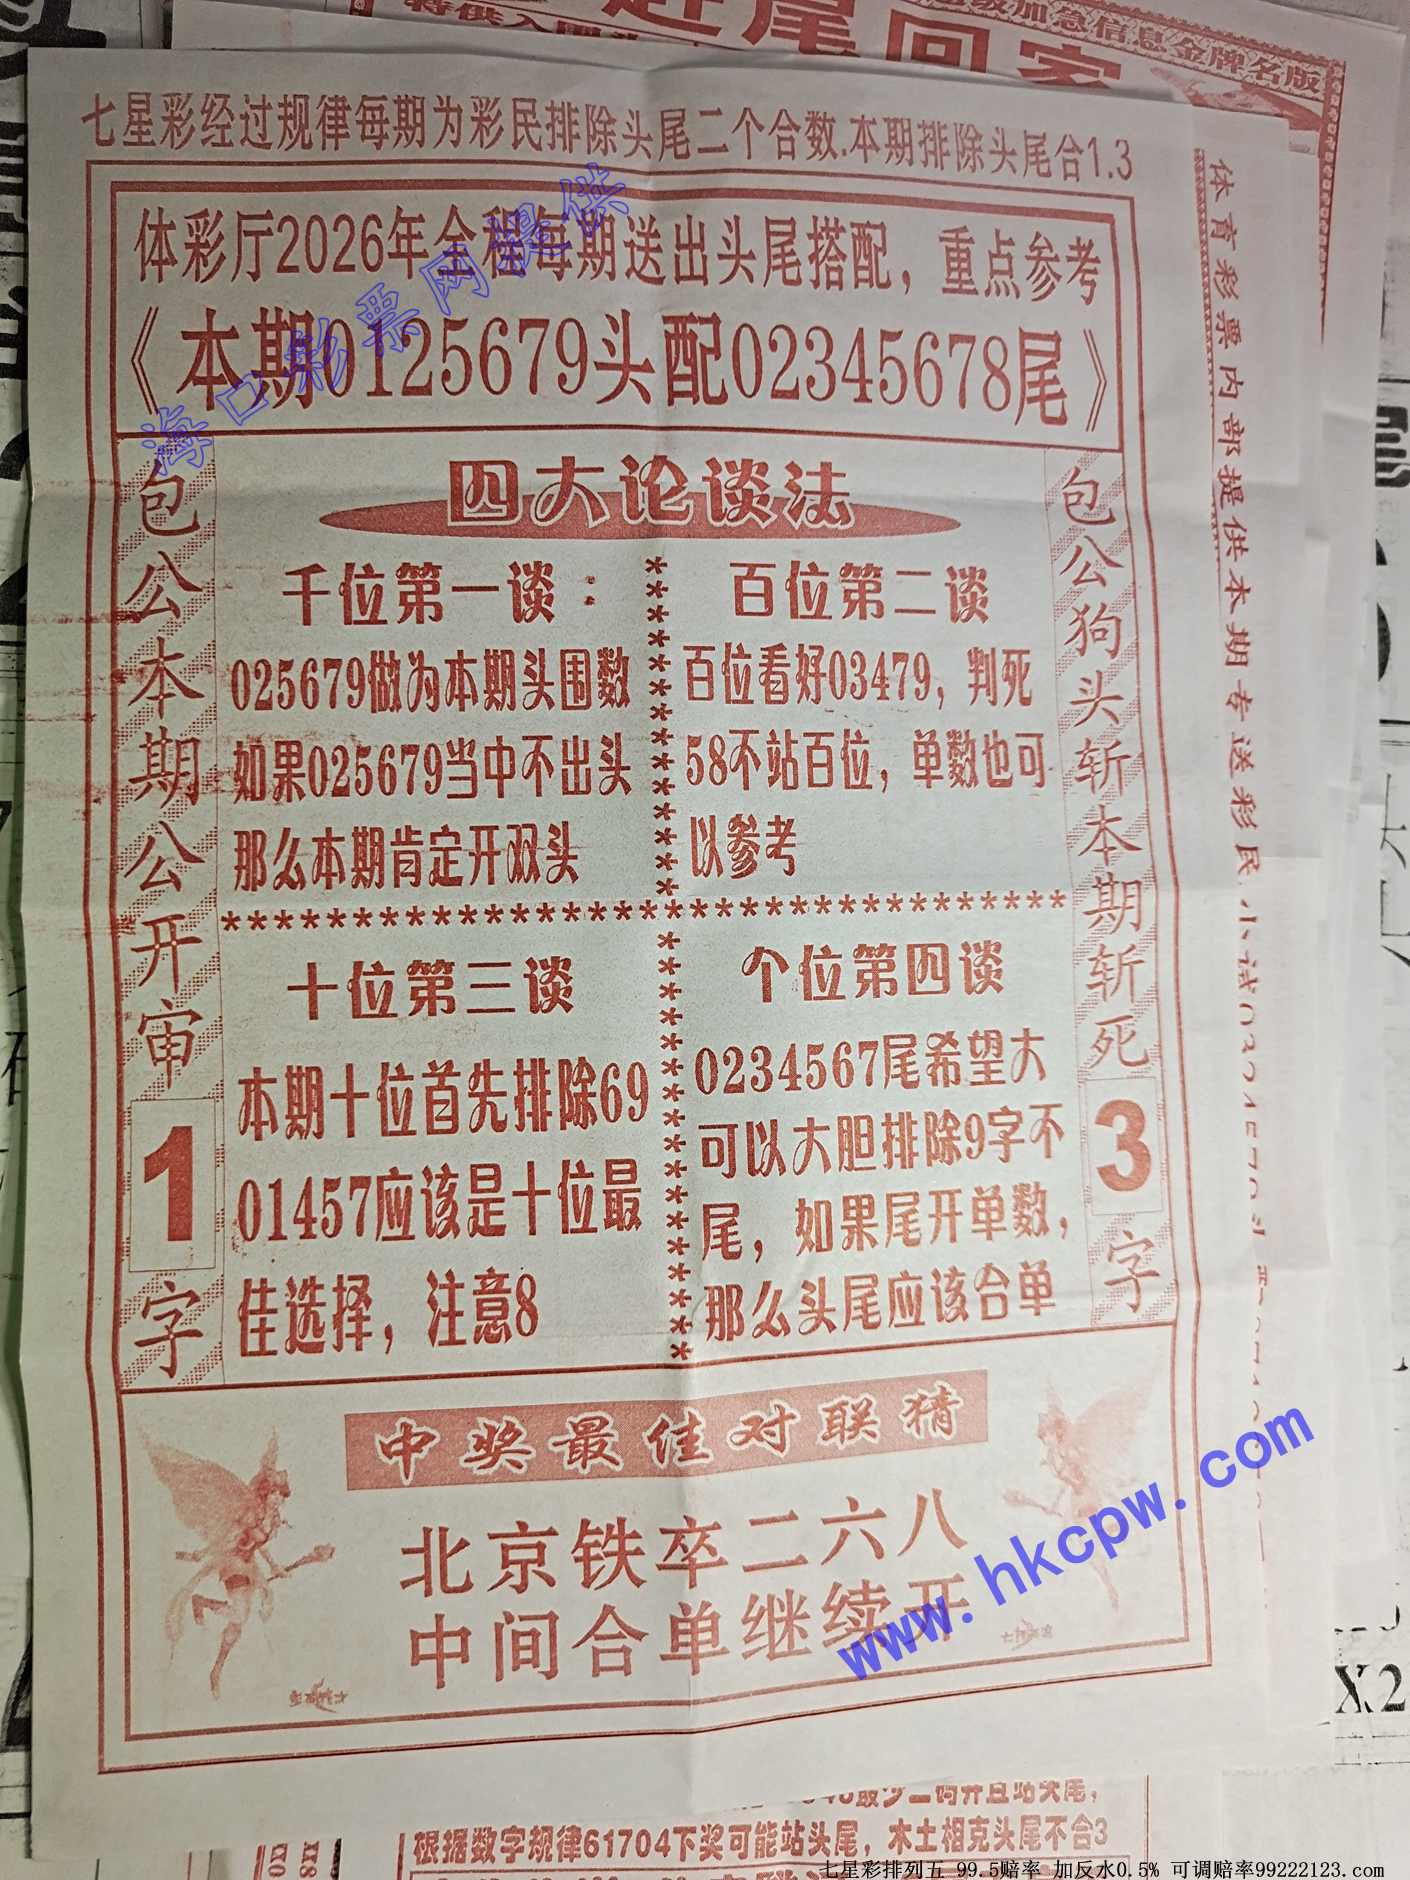 赶尾回家
超级加急信息金牌名版
七星彩经过规律每期为彩民排除头尾二个合数.本期排除头尾合1.3
体彩厅2026年全程每期送出头尾搭配，重点参考
《本期0125679头配02345678尾》
海口彩票网提供
包公本期公开审1字
四大论谈法
千位第一谈：
025679做为本期头围数
如果025679当中不出头
那么本期肯定开双头
百位第二谈
百位看好03479，判死
58不站百位，单数也可
以参考
***********************************
十位第三谈
本期十位首先排除69
01457应该是十位最
佳选择，注意8
个位第四谈
0234567尾希望大
可以大胆排除9字不
尾，如果尾开单数，
那么头尾应该合单
包公狗头斩本期斩死3字
体育彩票内部提供本期专送彩民
中奖最佳对联猜
北京铁卒二六八
中间合单继续开
www.hkcpw.com
X2
根据数字规律61704下奖可能站头尾，木土相克头尾不合3
七星彩排列五 99.5赔率 加反水0.5% 可调赔率99222123.com